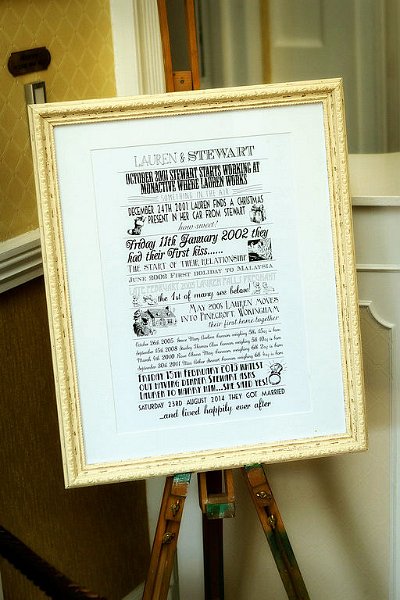 LAUREN & STEWART
OCTOBER 2001 STEWART STARTS WORKING AT
MONACTIVE WHERE LAUREN WORKS
SOMETHING IN THE AIR
DECEMBER 24TH 2001 LAUREN FINDS A CHRISTMAS
PRESENT IN HER CAR FROM STEWART
how sweet!
Friday 11th January 2002 they
had their first kiss......
THE START OF THEIR RELATIONSHIP
JUNE 2002 FIRST HOLIDAY TO MALAYSIA
FEBRUARY 2005 LAUREN FALLS PREGNANT
the 1st of many see below!
MAY 2005 LAUREN MOVES
INTO PINECROFT, WOKINGHAM
their first home together
October 26th 2005
September 15th 2008
March 4th 2010
September 30th 2011
FRIDAY 15TH FEBRUARY 2013 WHILST
OUT HAVING DINNER STEWART ASKS
LAUREN TO MARRY HIM....SHE SAID YES!
SATURDAY 23RD AUGUST 2014 THEY GOT MARRIED
...and lived happily ever after